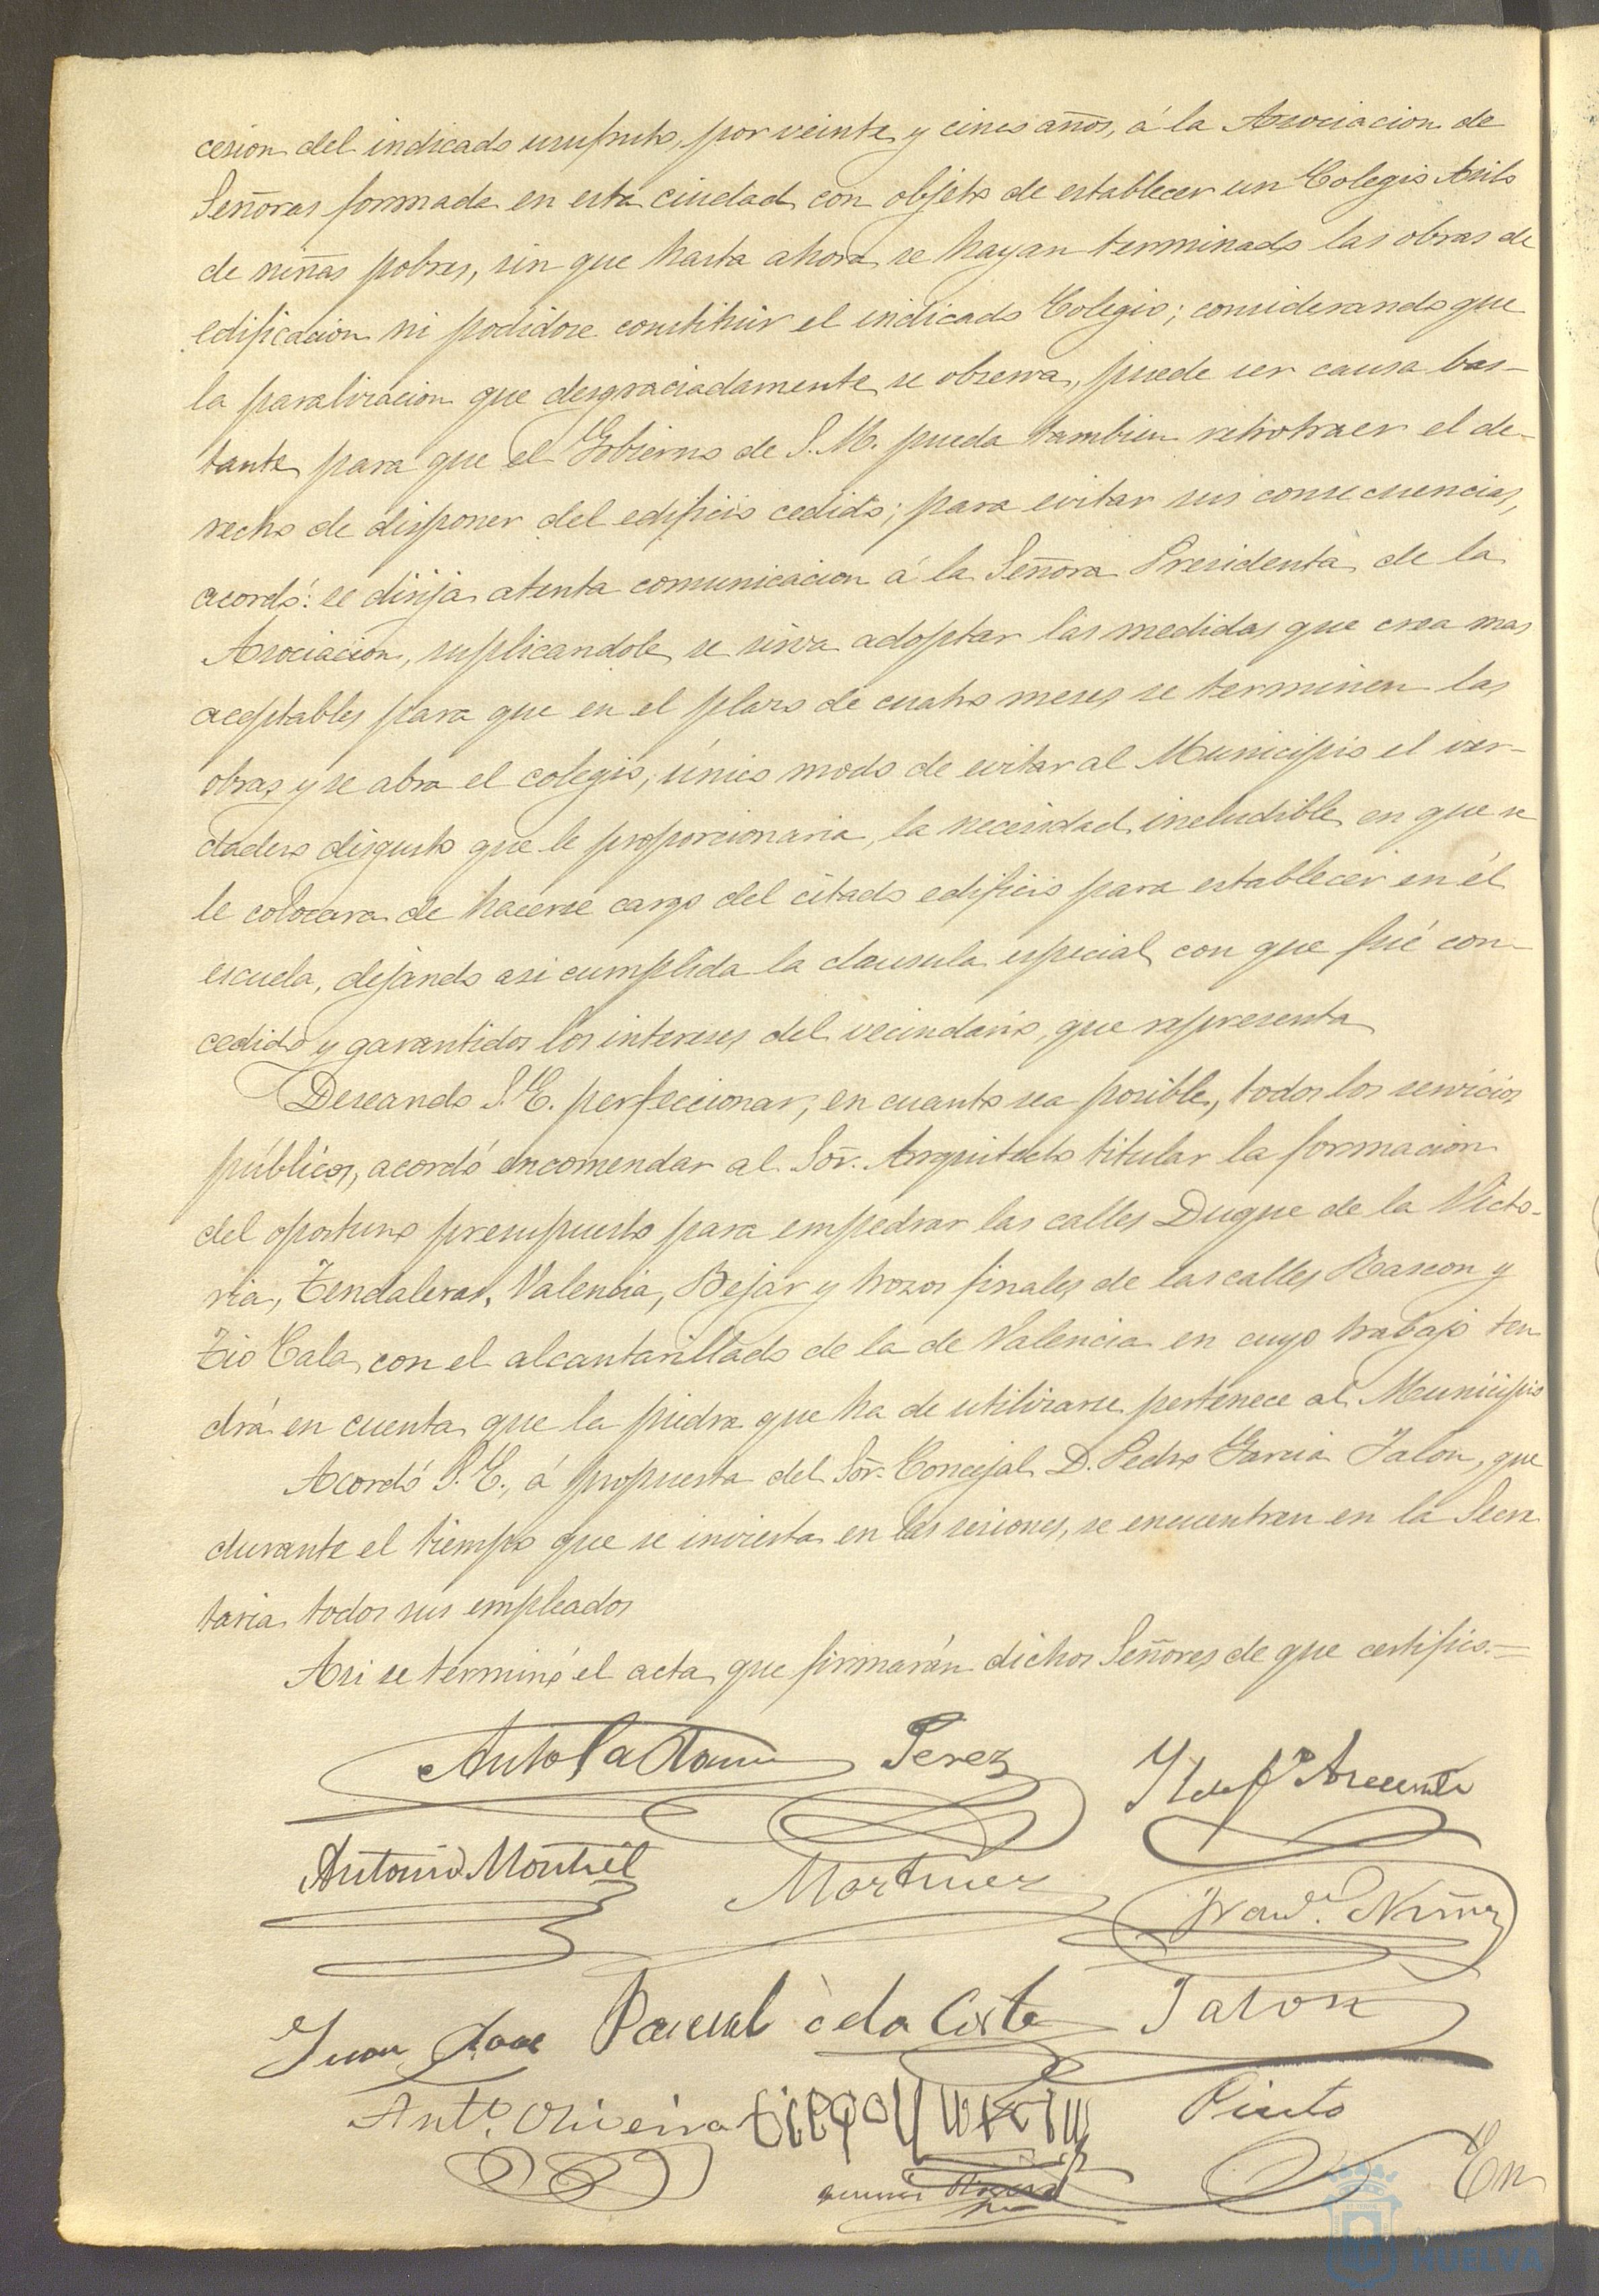 cesion del indicado usufruto, por veinte y cinco años, á la Asociacion de
Señoras formada en esta ciudad con objeto de establecer un Colegio Asilo
de niñas pobres, sin que hasta ahora se hayan terminado las obras de
edificacion ni podidose constituir el indicado Colegio; considerando que
la paralizacion que desgraciadamente se observa, puede ser causa bas-
tante para que el Gobierno de S. M. pueda tambien retrotraer el de-
recho de disponer del edificio cedido; para evitar sus consecuencias,
acordó: se dirija atenta comunicacion á la Señora Presidenta de la
Asociacion, suplicandole se sirva adoptar las medidas que crea mas
aceptables para que en el plazo de cuatro meses se terminen las
obras y se abra el colegio, único modo de evitar al Municipio el ver-
dadero disgusto que le proporcionaria la necesidad ineludible en que se
le colocara de hacerse cargo del citado edificio para establecer en él
escuela, dejando asi cumplida la clausula especial con que fué con-
cedido y garantidos los intereses del vecindario que representa
Deseando S. E. perfeccionar, en cuanto sea posible, todos los servicios
públicos, acordó encomendar al Sor. Arquitecto titular la formacion
del oportuno presupuesto para empedrar las calles Duque de la Victo-
ria, Tendaleras, Valencia, Bejar y trozos finales de las calles Rascon y
Tio Cala, con el alcantarillado de la de Valencia en cuyo trabajo ten
drá en cuenta que la piedra que ha de utilizarse pertenece al Municipio
Acordó S. E., á propuesta del Sor. Concejal D. Pedro Garcia Jalon, que
durante el tiempo que se invierta en las sesiones, se encuentren en la Secre
taria todos sus empleados
Asi se terminó el acta que firmarán dichos Señores de que certifico.=
Perez
Antonio Montiel Martinez Franco. Nuñez
Juan Pascual de la Corte Jalon
Anto. Oliveira Pinto
En
HUELVA